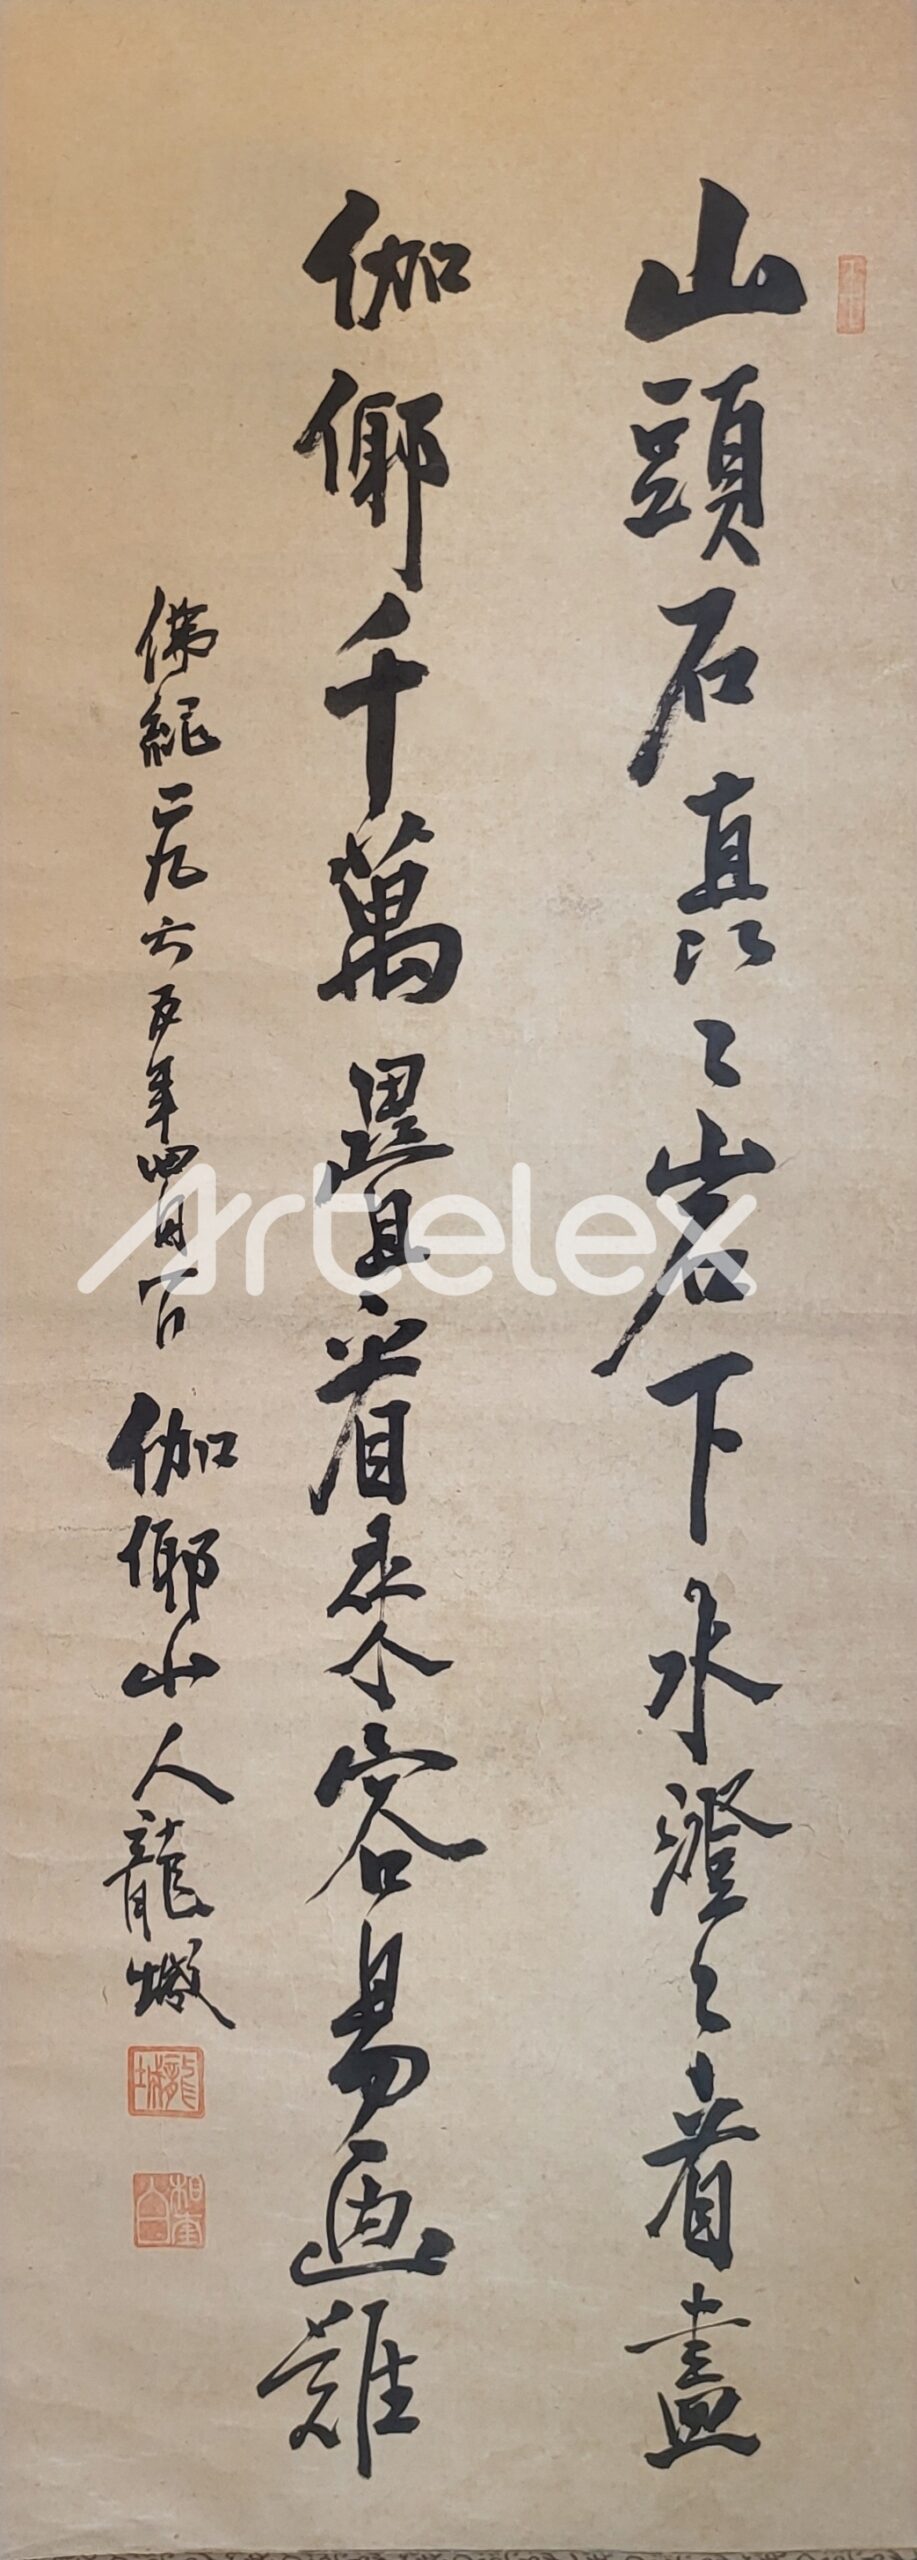 山頭石真々岩下水澄々看盡
伽倻千萬疊看來容易画難
佛紀二九六五年四月一日 伽倻山人龍城
龍城
Artelex